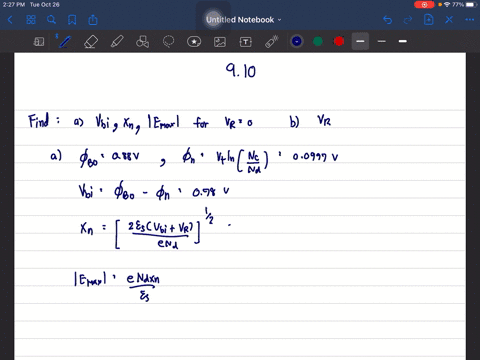 2:27 PM Tue Oct 26
77%
Untitled Notebook
9.10
Find : a) Vbi, xn, |Emax| for VR = 0 b) VR
a) ϕB0 = 0.88 V , ϕn = Vt ln [Nc/Nd] = 0.0997 V
Vbi = ϕB0 - ϕn = 0.78 V
xn = [2εs(Vbi + VR)/eNd]^1/2 =
|Emax| = eNdxn/εs